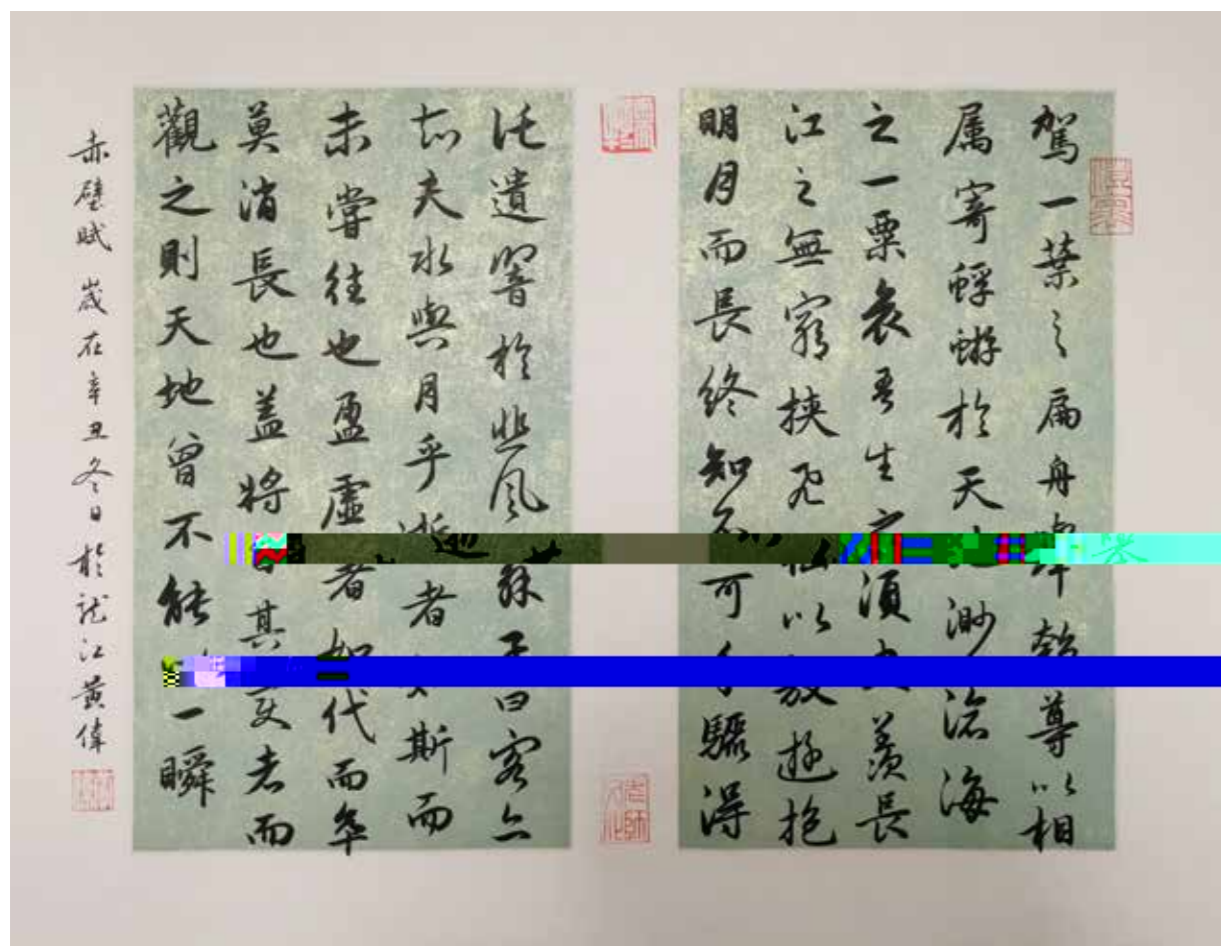 駕一葉之扁舟匏尊以相
属寄蜉蝣於天渺滄海
之一粟哀吾生之須羡長
江之無窮挾飛仙以遨遊抱
明月而長終知不可驟得
託遺響於悲風蘇子曰客亦
知夫水與月乎逝者斯而
未嘗往也盈虛者如代而卒
莫消長也盖將其變者而
觀之則天地曾不能一瞬
赤壁賦 歲在辛丑冬日於龍江黃偉